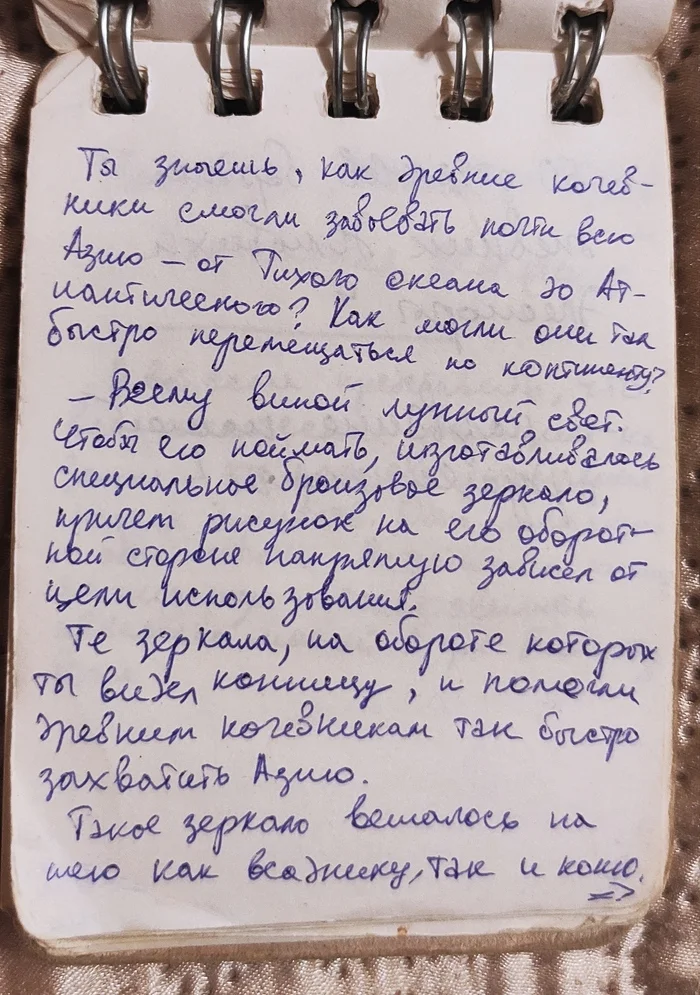 Ты знаешь, как древние кочев-
ники смогли завоевать почти всю
Азию – от Тихого океана до Ат-
лантического? Как могли они так
быстро перемещаться по континенту?
– Всему виной лунный свет.
Чтобы его поймать, изготавливалось
специальное бронзовое зеркало,
причем рисунок на его оборот-
ной стороне напрямую зависел от
цели использования.
Те зеркала, на обороте которых
ты видел конницу, и помогли
древним кочевникам так быстро
захватить Азию.
Такое зеркало вешалось на
шею как всаднику, так и коню.
=>